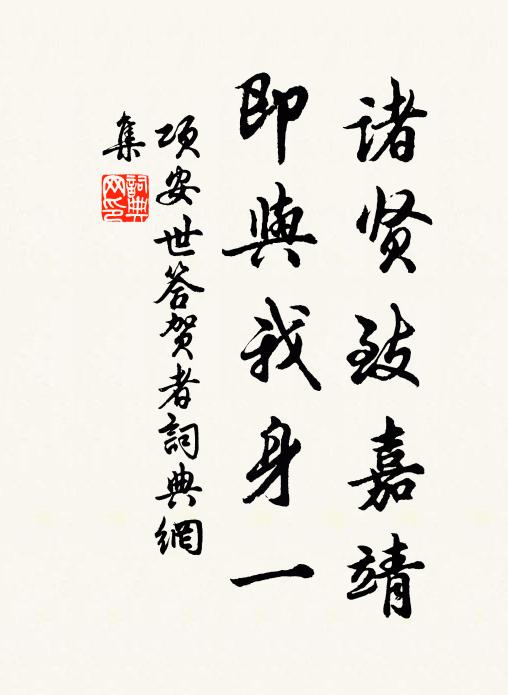 诸贤致嘉靖
即與我身一
项安世答贺者詞典網
集
詞典网印